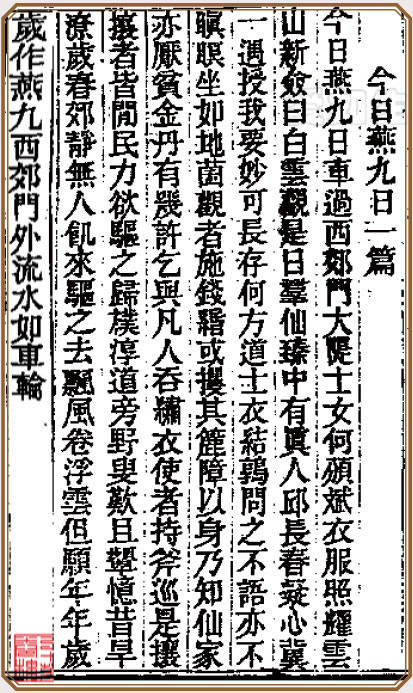 今日燕九日一篇
今日燕九日車過西郊門大隄士女何頻斌衣服照耀雲
山新僉曰白雲觀是日羣仙臻中有眞人邱長春凝心冀
一遇授我要妙可長存何方道士衣結鶉問之不語亦不
瞋瞑坐如地菌觀者施錢鏹或攫其簏障以身乃知仙家
亦厭貧金丹有幾許乞與凡人吞繡衣使者持斧巡是攘
攘者皆閒民力欲驅之歸樸淳道旁野叟歎且顰憶昔旱
潦歲春郊靜無人飢來驅之去飄風卷浮雲但願年年歲
歲作燕九西郊門外流水如車輪